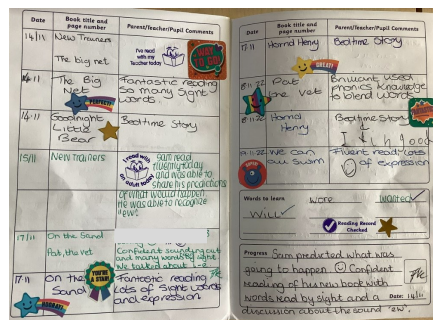 Date
Book title and
page number
Parent/Teacher/Pupil Comments
14/11
New Trainers
The big net
I've read
with my
Teacher today
WAY
TO GO!
The Big
Net
Fantastic reading
so many sight
words.
PERFECT!
Goodnight
Little
Bear
Bedtime Story
15/11
New Trainers
I read with
an adult today
Sam read,
fluently today
and was able to
share his predictions
of what would happen.
He was able to recognize
'ew'.
17/11
On the Sand
Pat, the vet
Confident sounding out
and many words by sight
We talked about i-e
17.11
On the
Sand
YOU'RE
A STAR!
Fantastic reading
lots of sight words
and expression
HOORAY!
Date
Book title and
page number
Parent/Teacher/Pupil Comments
17.11
Horrid Henry
Bedtime Story
GREAT!
Pat
the Vet
Brilliant used
phonics knowledge
to blend words
Horrid
Henry
Bedtime Story
We can
all swim
Fluent read lots
of expression
Words to learn
wore
wanted
Will
Reading Record
Checked
Progress Sam predicted what was
going to happen. Confident
reading of his new book with
words read by sight and a Date: 14/11
discussion about the sound 'ew'.